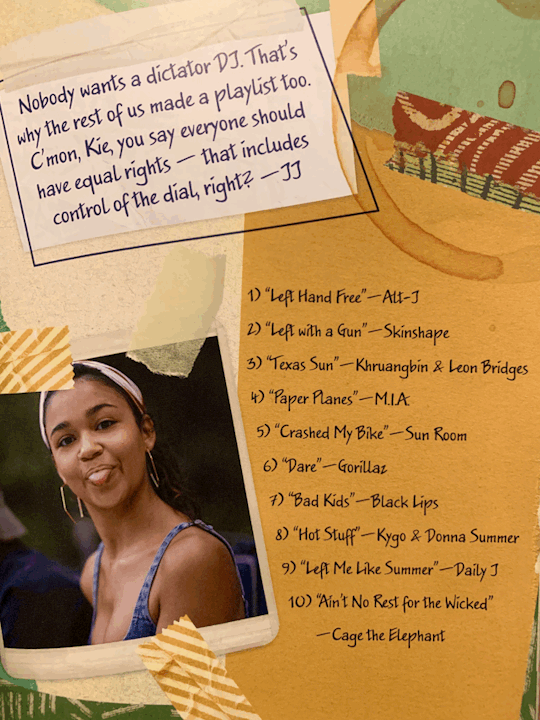 Nobody wants a dictator DJ. That's
why the rest of us made a playlist too.
C'mon, Kie, you say everyone should
have equal rights — that includes
control of the dial, right? —JJ
1) "Left Hand Free"—Alt-J
2) "Left with a Gun"—Skinshape
3) "Texas Sun"—Khruangbin & Leon Bridges
4) "Paper Planes"—M.I.A.
5) "Crashed My Bike"—Sun Room
6) "Dare"—Gorillaz
7) "Bad Kids"—Black Lips
8) "Hot Stuff"—Kygo & Donna Summer
9) "Left Me Like Summer"—Daily J
10) "Ain't No Rest for the Wicked"
—Cage the Elephant